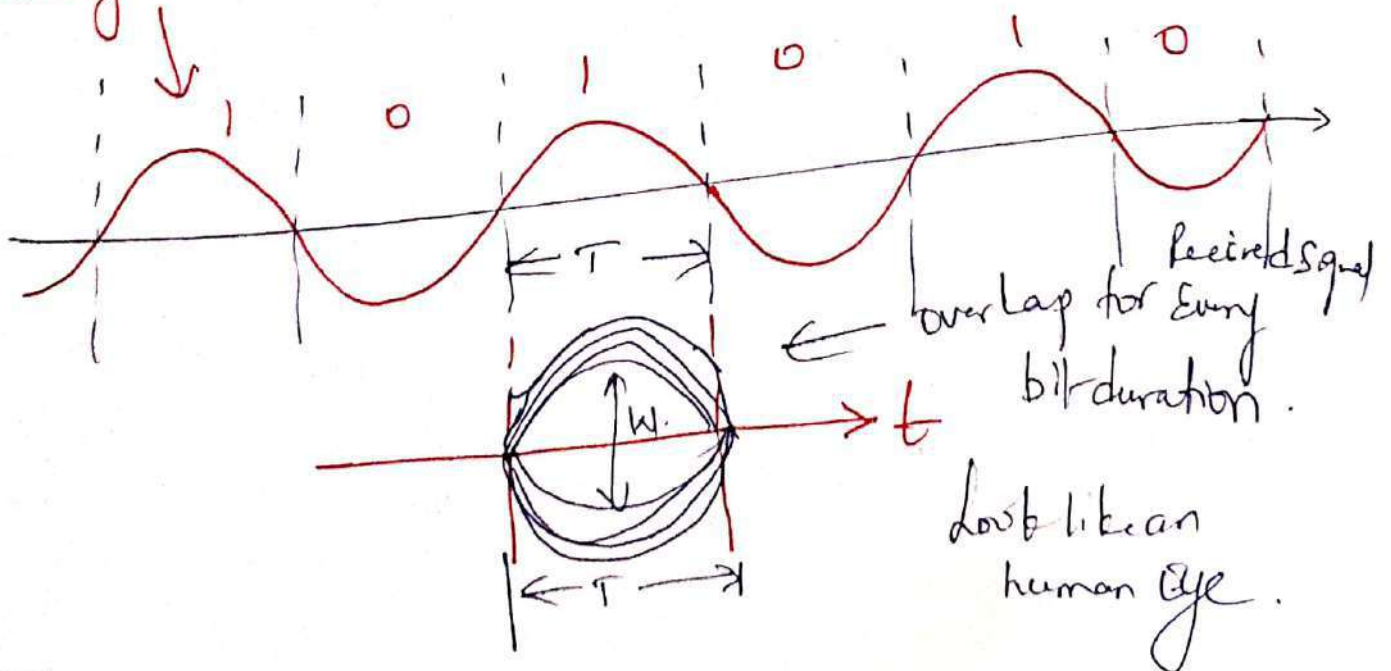 1 0 1 0 1 0
T
Received Signal
overlap for Every
bit duration.
W.
t
Look like an
human Eye.
T